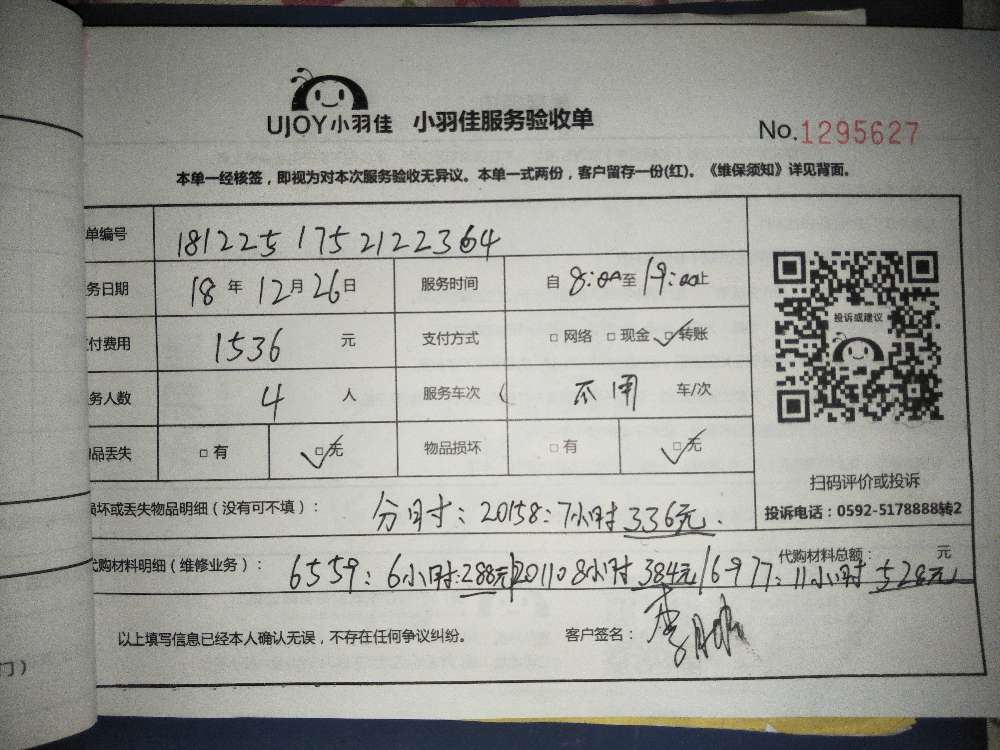 UJOY小羽佳 小羽佳服务验收单
No.1295627
本单一经核签，即视为对本次服务验收无异议。本单一式两份，客户留存一份(红)。《维保须知》详见背面。
单编号 181225 1752122364
务日期 18年12月26日 服务时间 自8:00至19:00止
付费用 1536 元 支付方式 □网络 □现金 ☑转账
务人数 4 人 服务车次 不用 车/次
品丢失 □有 ☑无 物品损坏 □有 ☑无
投诉或建议
扫码评价或投诉
投诉电话：0592-5178888转2
损坏或丢失物品明细（没有可不填）： 分时：20158：7小时336元.
代购材料明细（维修业务）： 6559：6小时：288元/20110 8小时384元/6977：11小时528元
代购材料总额： 元
以上填写信息已经本人确认无误，不存在任何争议纠纷。 客户签名：
门）